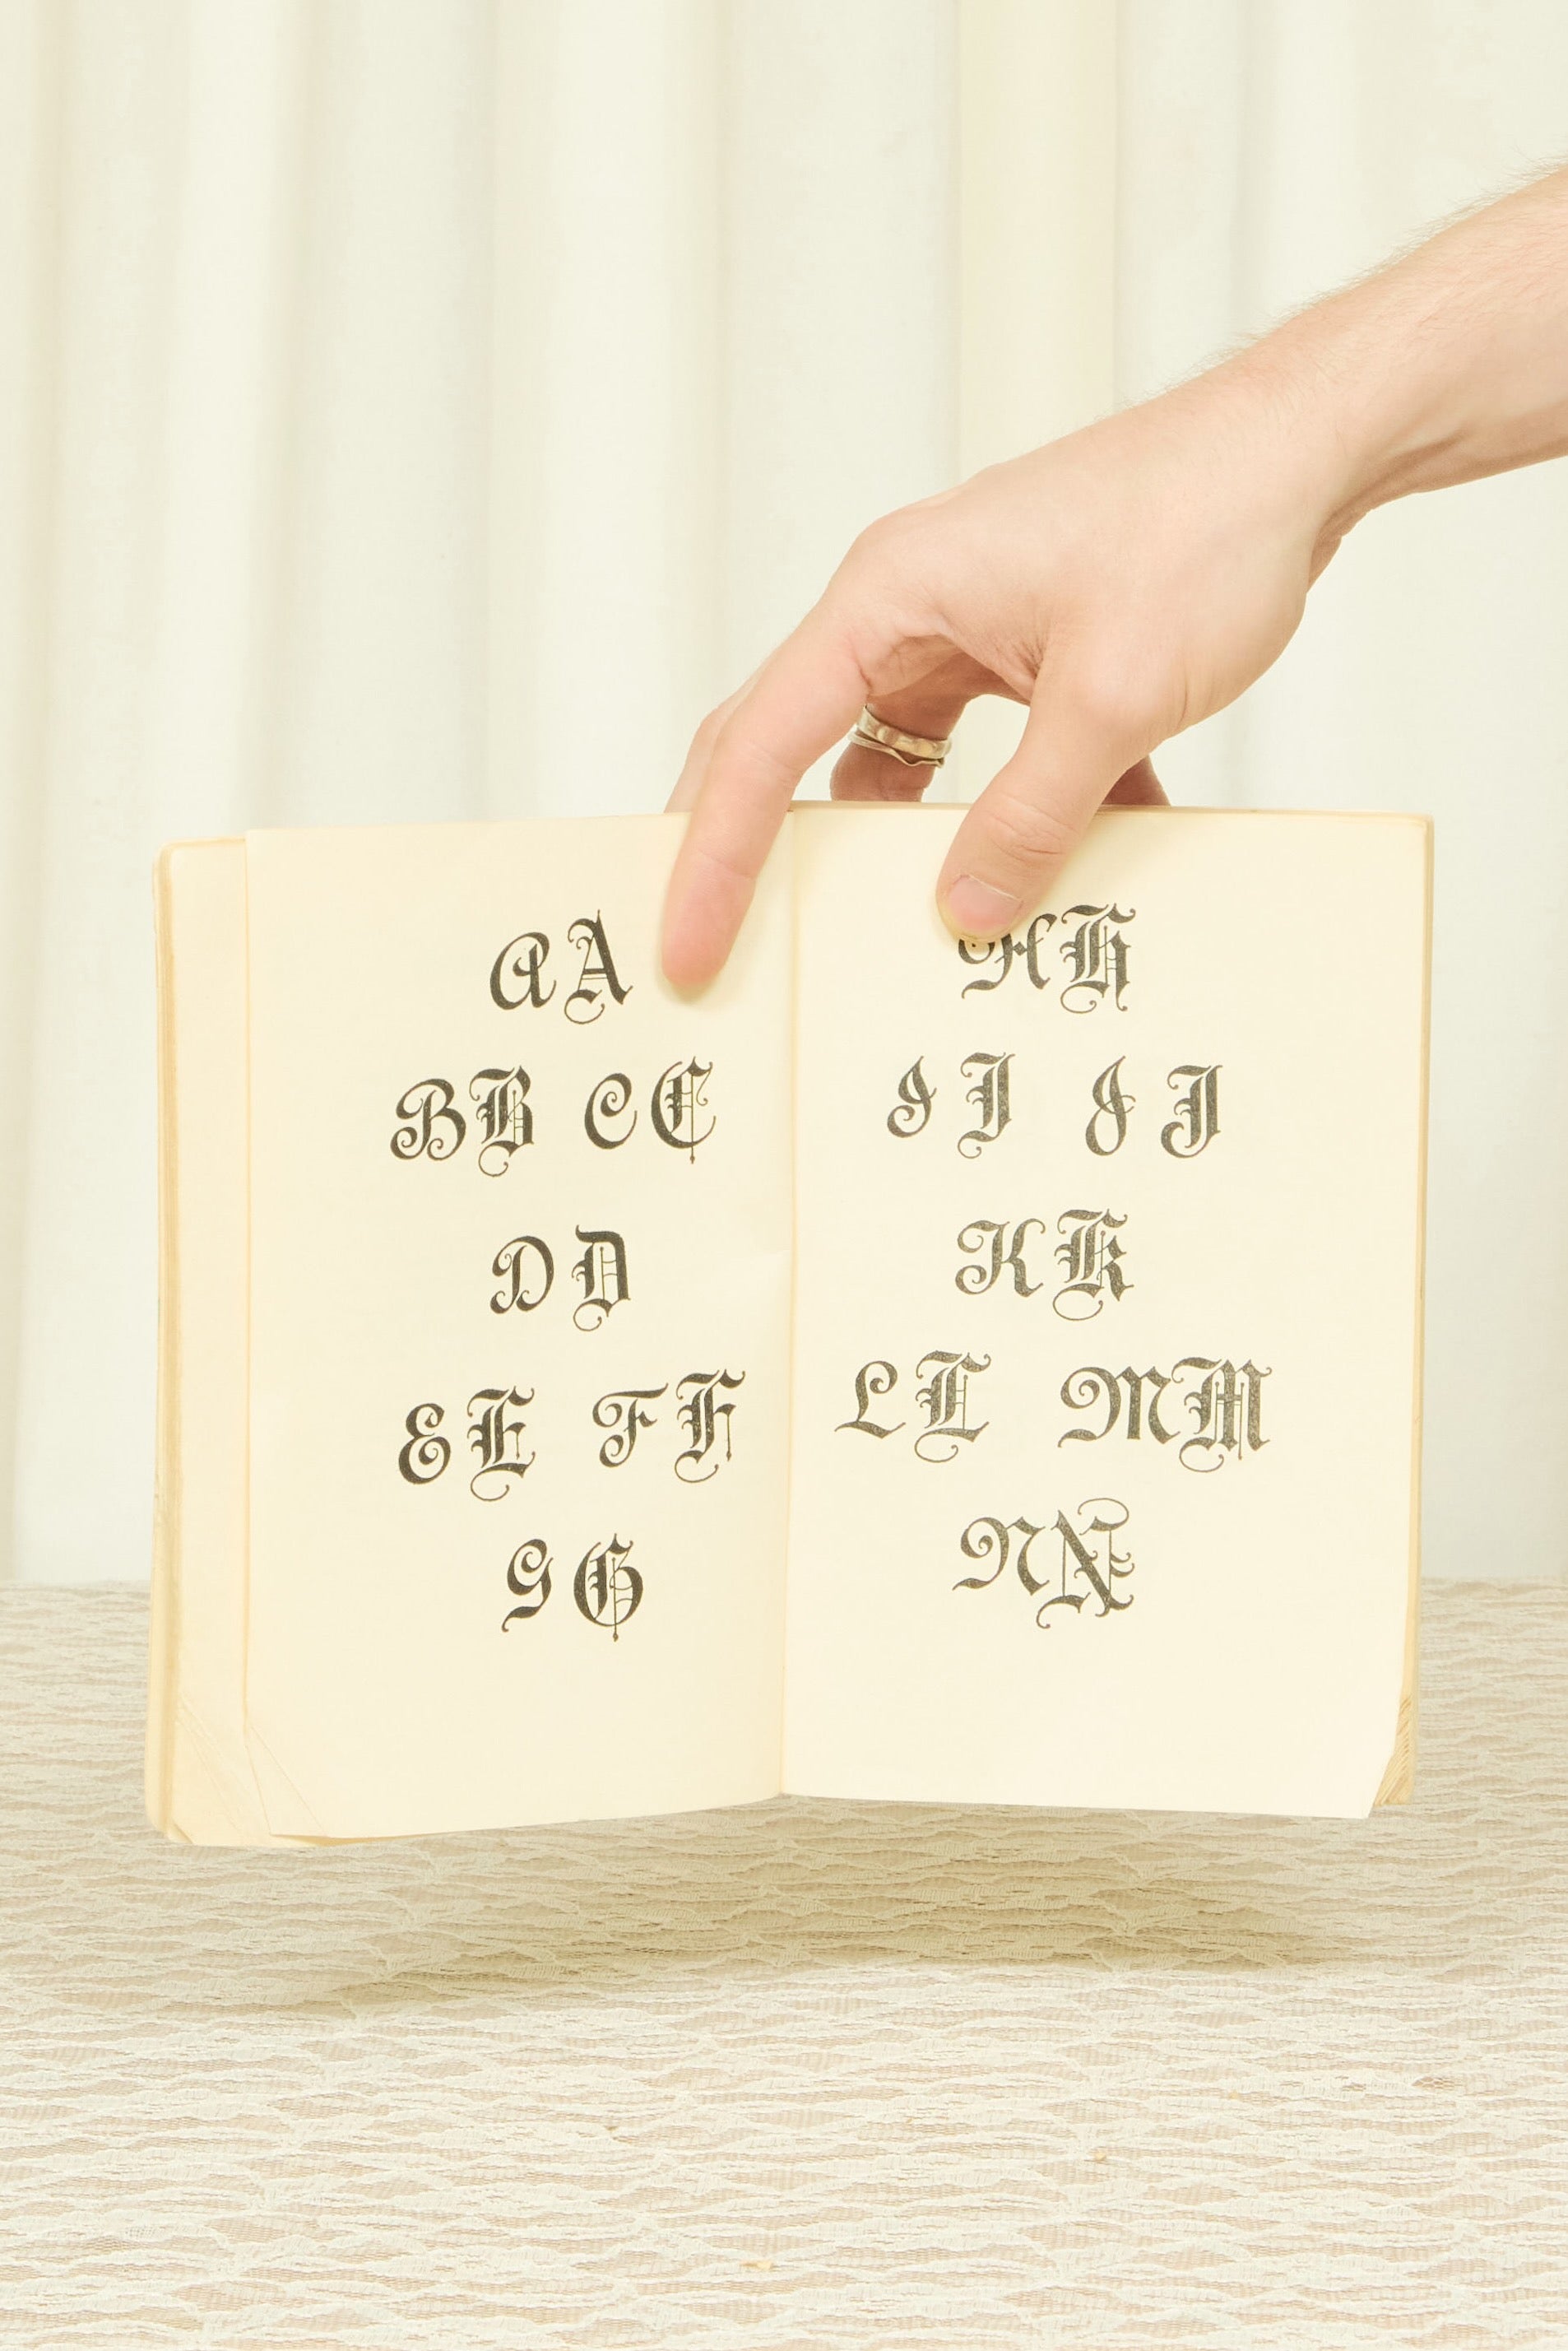 A A
B B C C
D D
E E F F
G G
H H
I I J J
K K
L L M M
N N